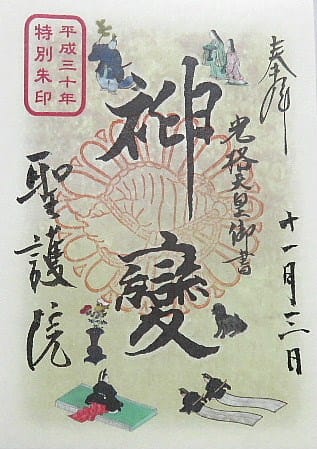 奉拝
十一月三日
光格天皇御書
神變
平成三十年
特別朱印
聖護院